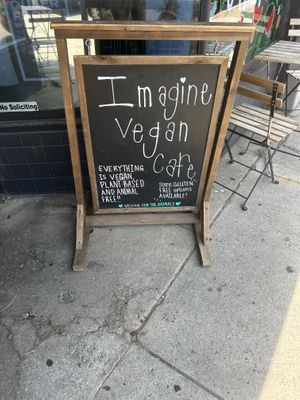 No Soliciting
Imagine
Vegan
Cafe
EVERYTHING
IS VEGAN,
PLANT BASED
AND ANIMAL
FREE!!
Some GLUTEN
FREE options
AVAILABLE!
VEGAN FOR THE ANIMALS